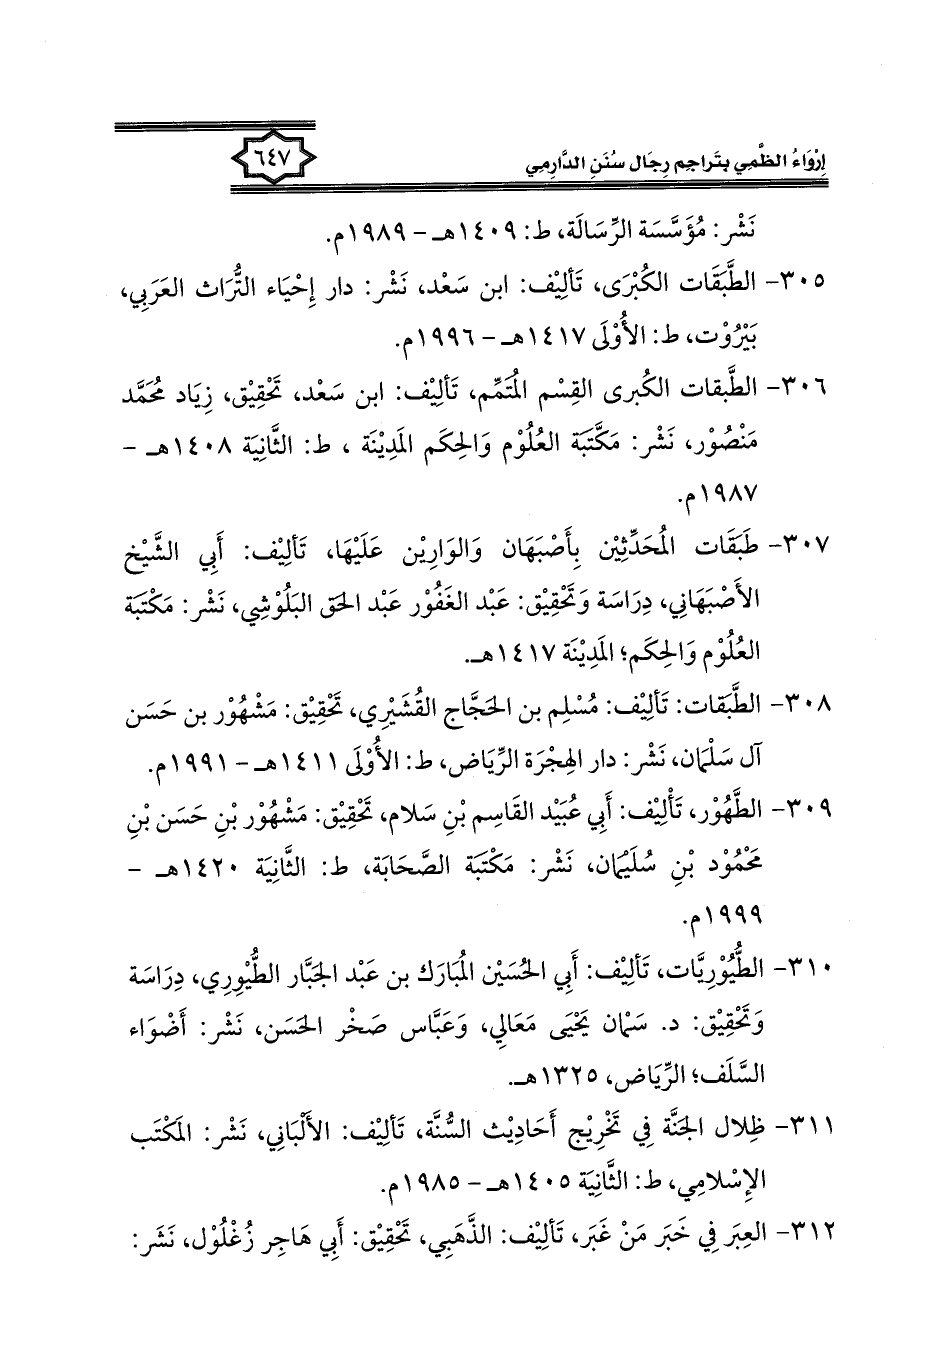 إِرْوَاءُ الظَّمِي بتَراجِم رِجَال سُنَنِ الدَّارِمِي
٦٤٧
نَشْر: مُؤَسَّسَة الرِّسَالَة، ط: ١٤٠٩هـ - ١٩٨٩م.
٣٠٥- الطَّبَقَات الكُبْرَى، تَأْلِيْف: ابن سَعْد، نَشْر: دار إِحْيَاء التُّرَاث العَرَبِي،
بَيْرُوْت، ط: الأُوْلَى ١٤١٧هـ - ١٩٩٦م.
٣٠٦- الطَّبقات الكُبرى القِسْم المُتَمِّم، تَألِيْف: ابن سَعْد، تَحْقِيْق، زِيَاد مُحَمَّد
مَنْصُوْر، نَشْر: مَكْتَبَة العُلُوْم وَالحِكَم المَدِيْنَة ، ط: الثَّانِيَة ١٤٠٨هـ -
١٩٨٧م.
٣٠٧- طَبَقَات المُحَدِّثِيْن بِأَصْبَهَان وَالوَارِيْن عَلَيْهَا، تَألِيْف: أَبِي الشَّيْخ
الأَصْبَهَاني، دِرَاسَة وَتَحْقِيْق: عَبْد الغَفُوْر عَبْد الحَق البَلُوْشِي، نَشْر: مَكْتَبَة
العُلُوْم وَالحِكَم؛ المَدِيْنَة ١٤١٧هـ.
٣٠٨- الطَّبَقَات: تَألِيْف: مُسْلِم بن الحَجَّاج القُشَيْرِي، تَحْقِيْق: مَشْهُوْر بن حَسَن
آل سَلْمَان، نَشْر: دار الهِجْرَة الرِّيَاض، ط: الأُوْلَى ١٤١١هـ - ١٩٩١م.
٣٠٩- الطَّهُوْر، تَأْلِيْف: أَبِي عُبَيْد القَاسِم بْنِ سَلام، تَحْقِيْق: مَشْهُوْر بْنِ حَسَن بْنِ
مَحْمُوْد بْنِ سُلَيْمَان، نَشْر: مَكْتَبَة الصَّحَابَة، ط: الثَّانِيَة ١٤٢٠هـ -
١٩٩٩م.
٣١٠- الطُّيُوْرِيَّات، تَألِيْف: أَبِي الحُسَيْن المُبَارَك بن عَبْد الجَبَّار الطُّيُورِي، دِرَاسَة
وَتَحْقِيْق: د. سَمَان يَحْيَى مَعَالِي، وَعَبَّاس صَخْر الحَسَن، نَشْر: أَضْوَاء
السَّلَف؛ الرِّيَاض، ١٣٢٥هـ.
٣١١- ظِلال الجَنَّة فِي تَخْرِيْج أَحَادِيْث السُّنَّة، تَألِيْف: الأَلْبَانِي، نَشْر: المَكْتَب
الإِسْلامِي، ط: الثَّانِيَة ١٤٠٥هـ - ١٩٨٥م.
٣١٢- العِبَر فِي خَبَر مَنْ غَبَر، تَألِيْف: الذَّهَبِي، تَحْقِيْق: أَبِي هَاجِر زُغْلُوْل، نَشَر: